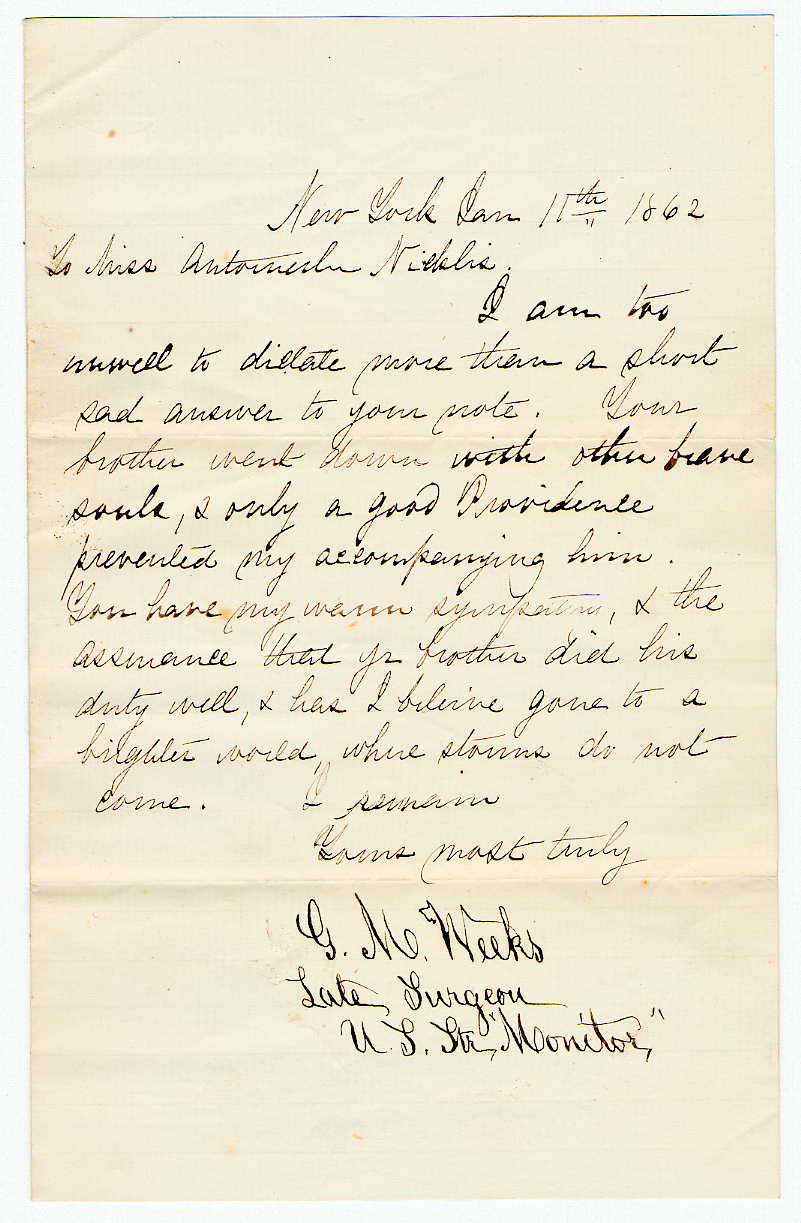 New York Jan 11th 1862
To Miss Antoinette Nicklis.
I am too
unwell to dictate more than a short
sad answer to your note. Your
brother went down with other brave
souls, & only a good Providence
prevented my accompanying him.
You have my warm sympathy, & the
assurance that yr brother did his
duty well, & has I believe gone to a
brighter world, where storms do not
come. I remain
Yours most truly
G. M. Weeks
Late Surgeon
U. S. Str. "Monitor"